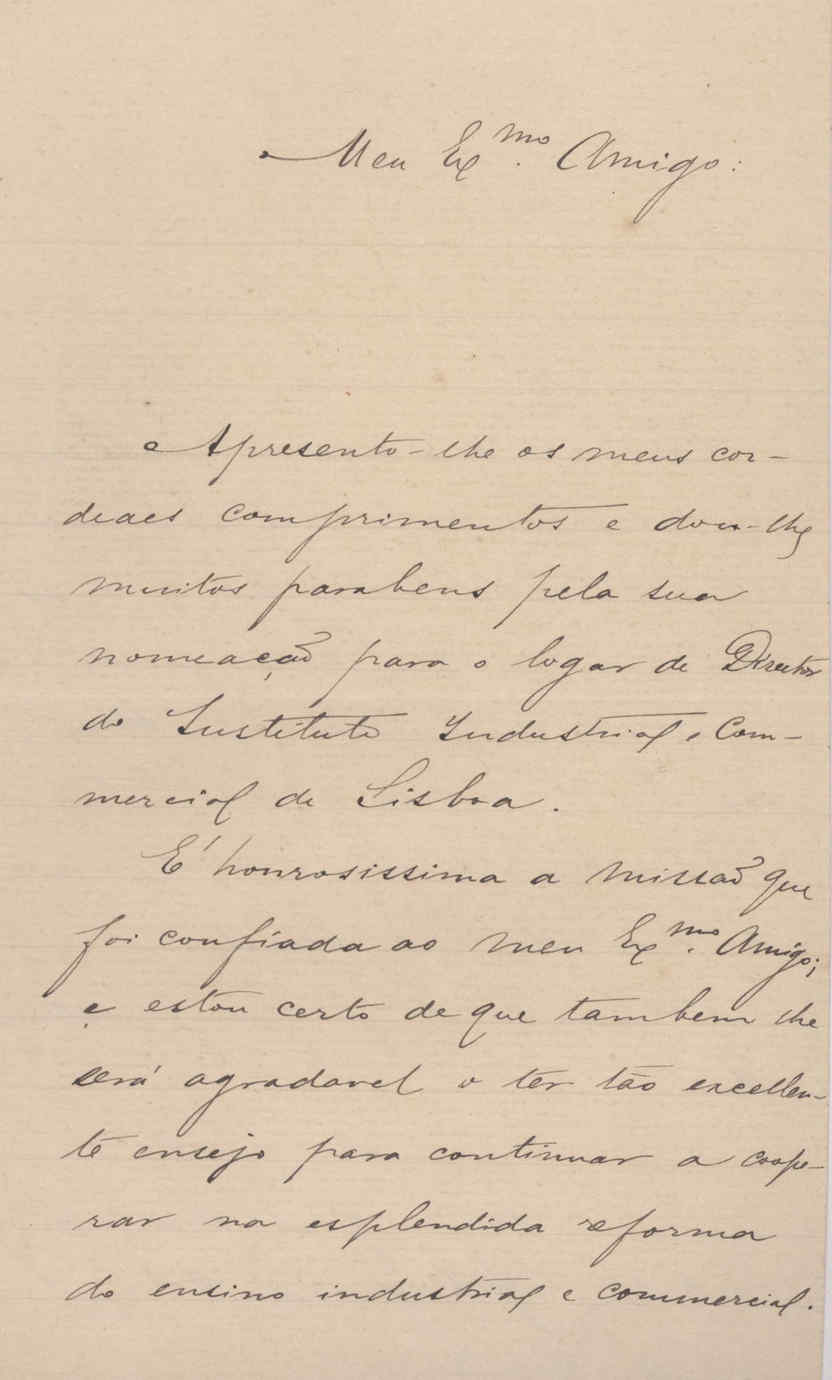 Meu Ex.mo Amigo:
Apresento-lhe os meus cor-
deaes comprimentos e dou-lhe
muitos parabens pela sua
nomeação para o logar de Director
do Instituto Industrial e Com-
mercial de Lisboa.
É honrosissima a missão que
foi confiada ao meu Ex.mo Amigo;
e estou certo de que tambem lhe
será agradavel o ter tão excellen-
te ensejo para continuar a coope-
rar na esplendida reforma
do ensino industrial e commercial.